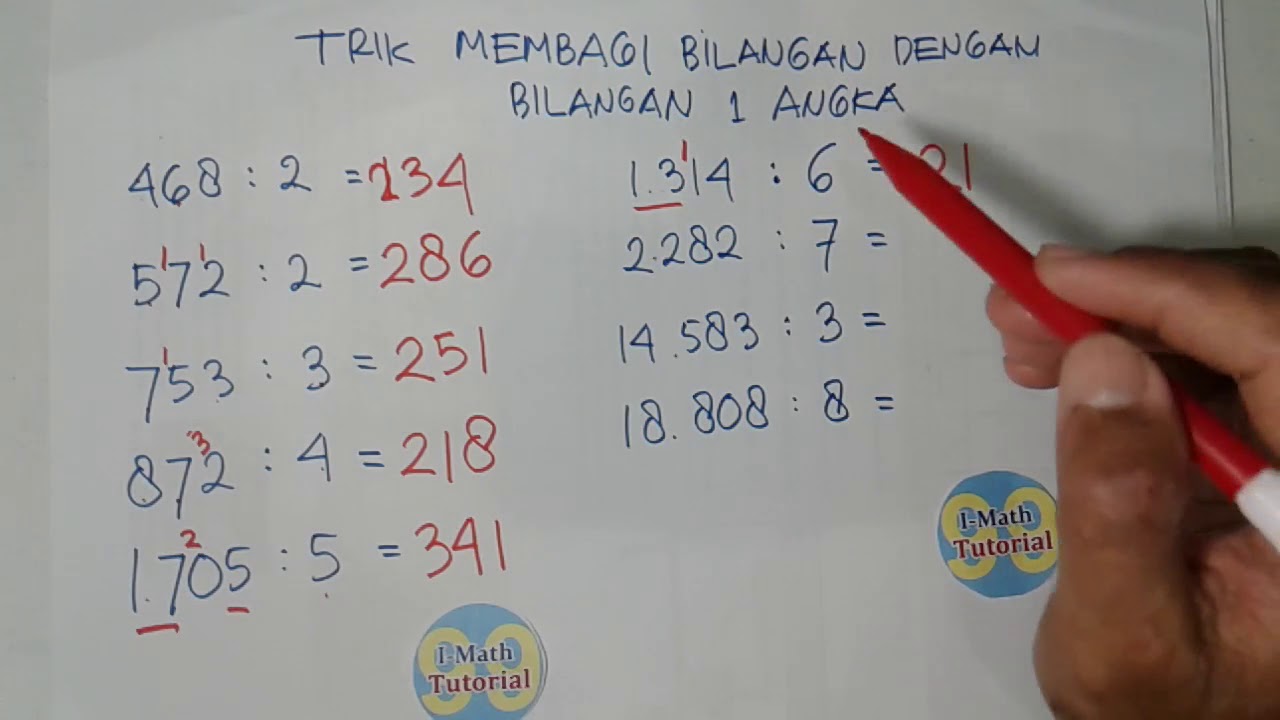 TRIK MEMBAGI BILANGAN DENGAN
BILANGAN 1 ANGKA
468 : 2 = 234
572 : 2 = 286
1 1
753 : 3 = 251
1
872 : 4 = 218
3
1.705 : 5 = 341
2
1.314 : 6 = 21
1
2.282 : 7 =
14.583 : 3 =
18.808 : 8 =
I-Math
Tutorial
I-Math
Tutorial